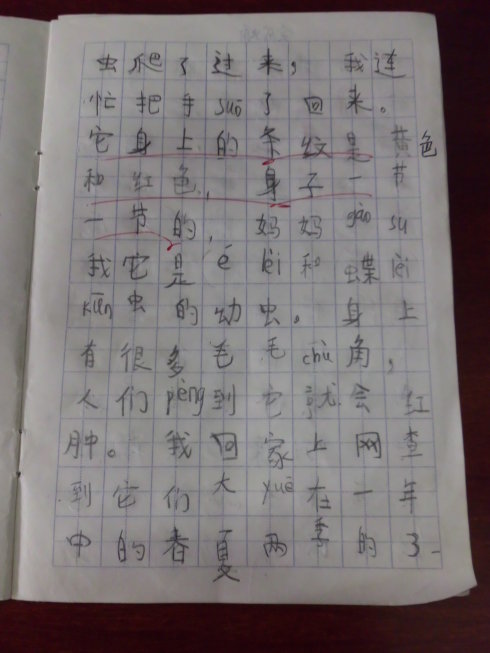 虫爬了过来，我连
忙把手suō了回来。
它身上的条纹是黄色
和红色，身子一节
一节的，妈妈gào su
我它是é lèi和蝶lèi
kūn虫的幼虫。身上
有很多毛毛chù角，
人们pèng到它就会红
肿。我回家上网查
到它们大yuē在一年
中的春夏两季的3-